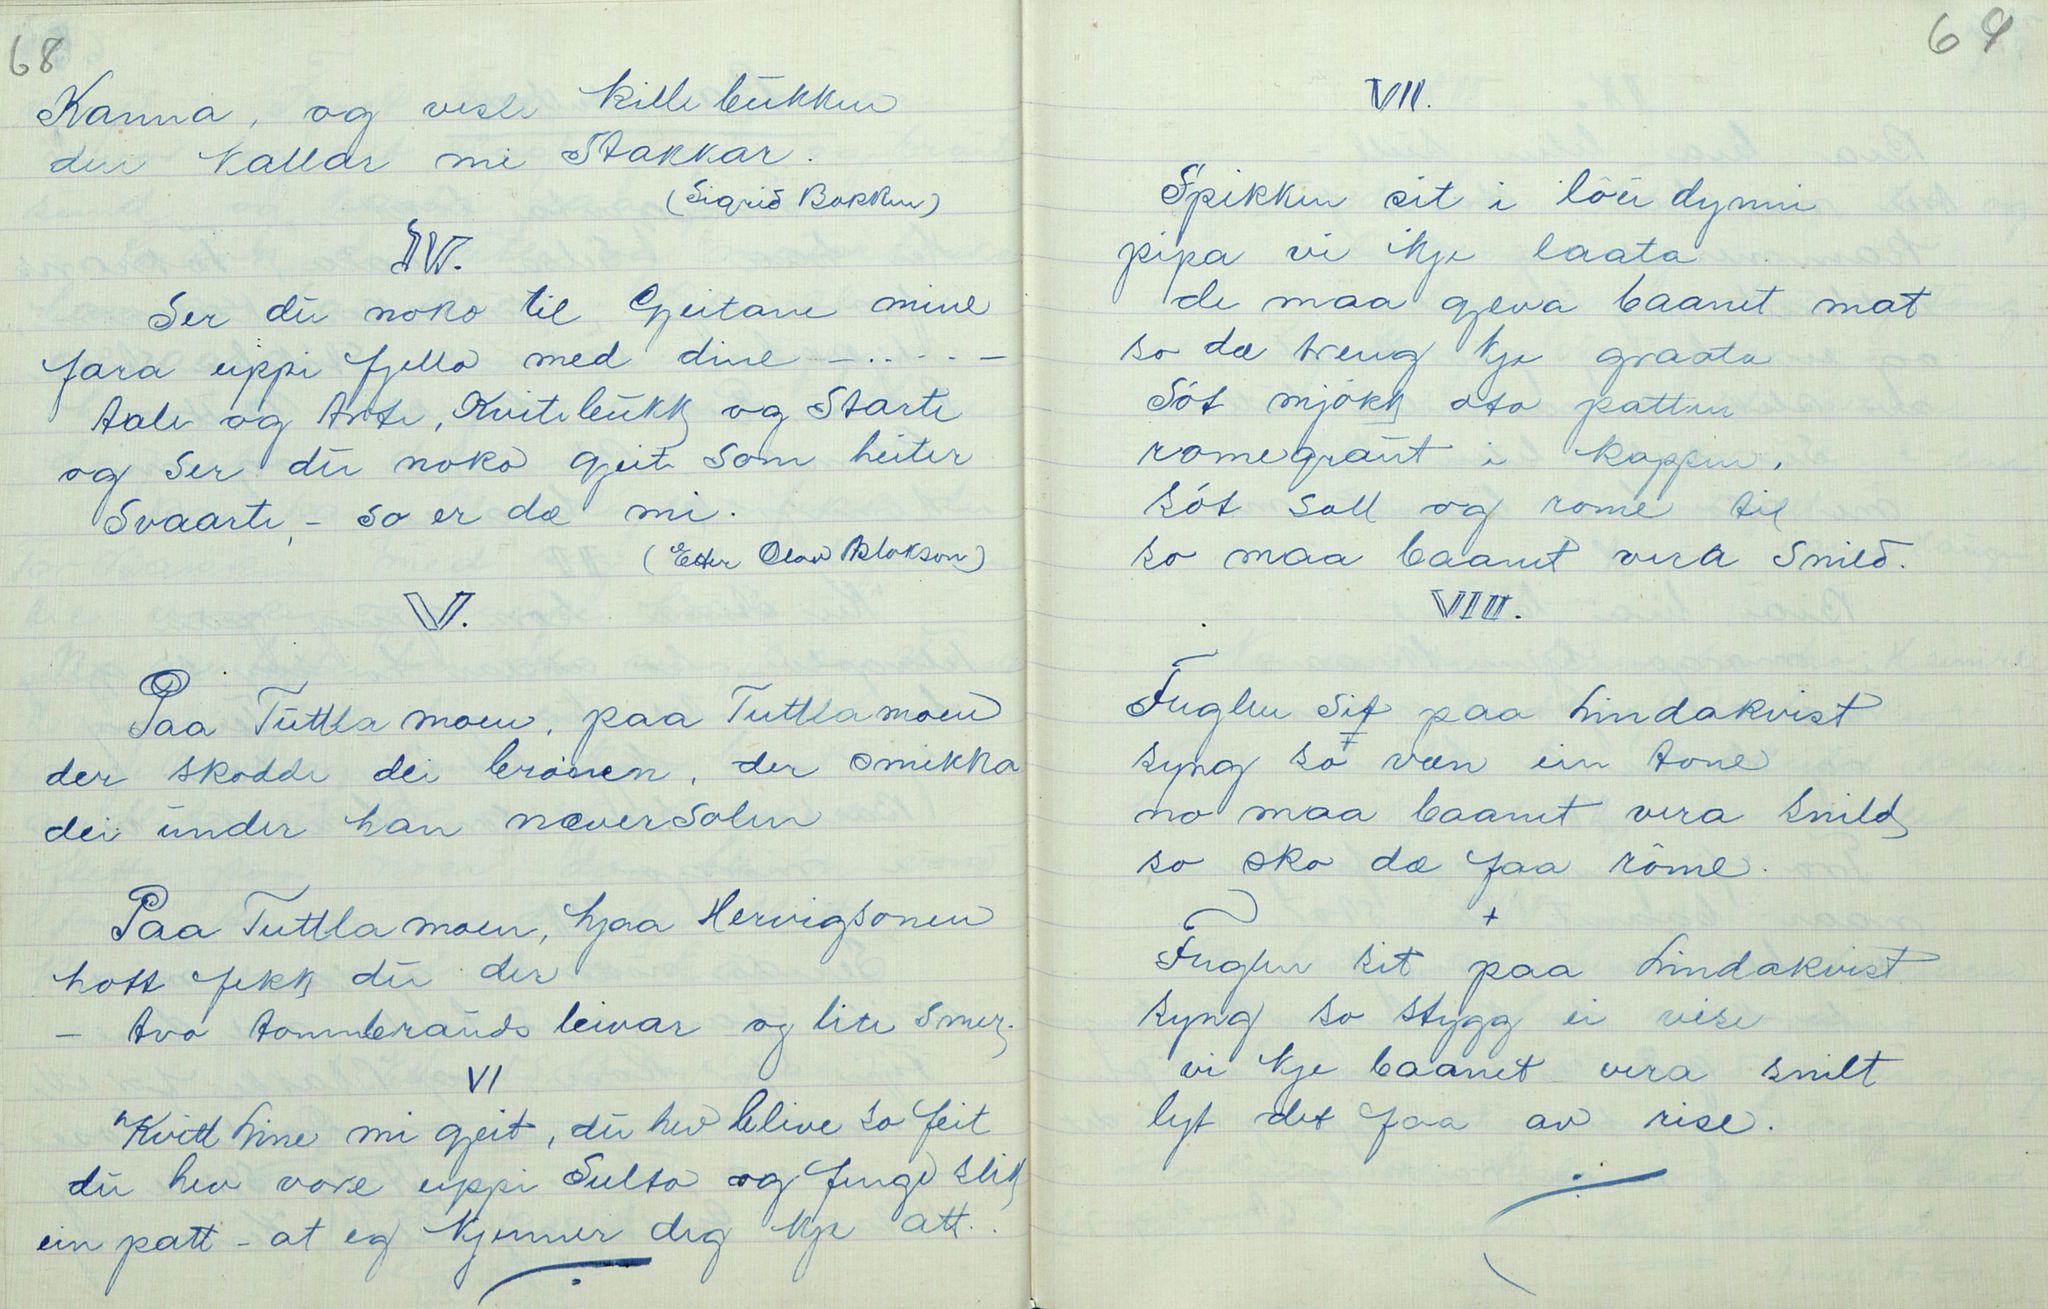 68
Kanna, og vesle killebukken
dei kallar mi Stakkar.
(Sigrid Bakken)
IV.
Ser du noko til Gjeitane mine
fara uppi fjello med dine – . . . . –
Aale og Arte, Kvitebukk og Starte
og Ser du noko gjeit Som heiter
Svaarte, – so er dæ mi.
(Etter Olav Aslakson)
V.
Paa Tuttlamoen, paa Tuttlamoen
der skodde dei brønen, der smikka
dei under han næversolen
Paa Tuttlamoen, hjaa Hervigsonen
hott fekk du der
– tvo tommbrauds leivar og lite smer.
VI
"Kvitt Line mi gjeit, du hev blive so feit
du hev vore uppi Sulto og funge slik
ein patt – at eg kjenner deg kje att.
69
VII.
Spikken sit i löudynni
pipa vi ikje laata
de maa gjeva baanet mat
so dæ treng kje graata
Söt mjökk oto patten
romegraut i koppen,
söt soll og rome til
so maa baanet vera snild.
VIII.
Fuglen sit paa Lindakvist
syng so væn ein tone
no maa baanet vera snild
so sko dæ faa röme.
+
Fuglen sit paa Lindakvist
syng so stygg ei vise
vi kje baanet vera snilt
lyt det faa av rise.